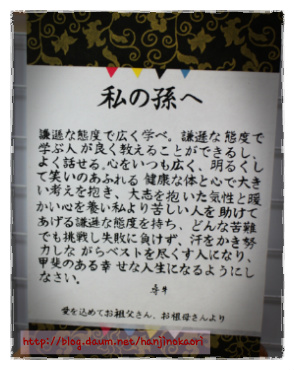 私の孫へ
謙遜な態度で広く学べ。謙遜な態度で
学ぶ人が良く教えることができるし、
よく話せる.心をいつも広く、明るくし
て笑いのあふれる 健康な体と心で大き
い考えを抱き、大志を抱いた気性と暖
かい心を養い私より苦しい人を助けて
あげる謙遜な態度を持ち、どんな苦難
でも挑戦し失敗に負けず、汗をかき努
力しな がらベストを尽くす人になり、
甲斐のある幸 せな人生になるようにし
なさい.
愛を込めてお祖父さん、お祖母さんより
http://blog.daum.net/hanjinokaori